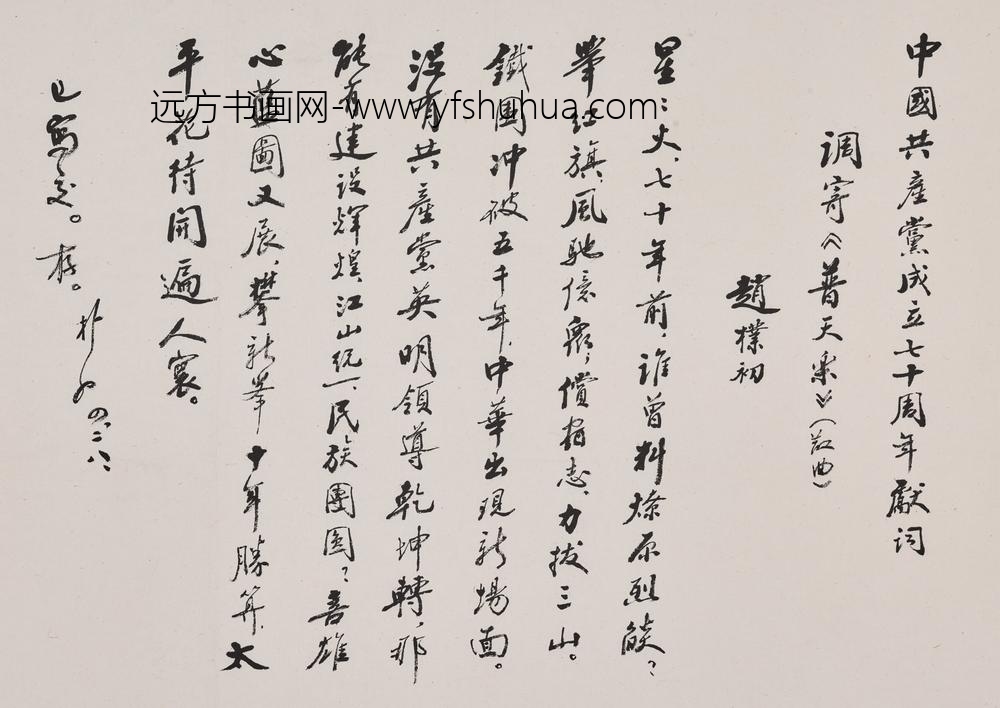 中國共產黨成立七十周年獻词
调寄《普天樂》（散曲）
趙樸初
星：火、七十年前，谁曾料燎原烈燄？
舉红旗，風馳億眾，償宿志、力拔三山。
鐵圍冲破五千年，中華出現新場面。
没有共產党英明領導乾坤轉，那
能有建设輝煌、江山統一、民族團圆？喜雄
心藍圖又展，攀新峯十年勝算，太
平花待開遍人寰。
已寫交。存。
朴
远方书画网-www.yfshuhua.com